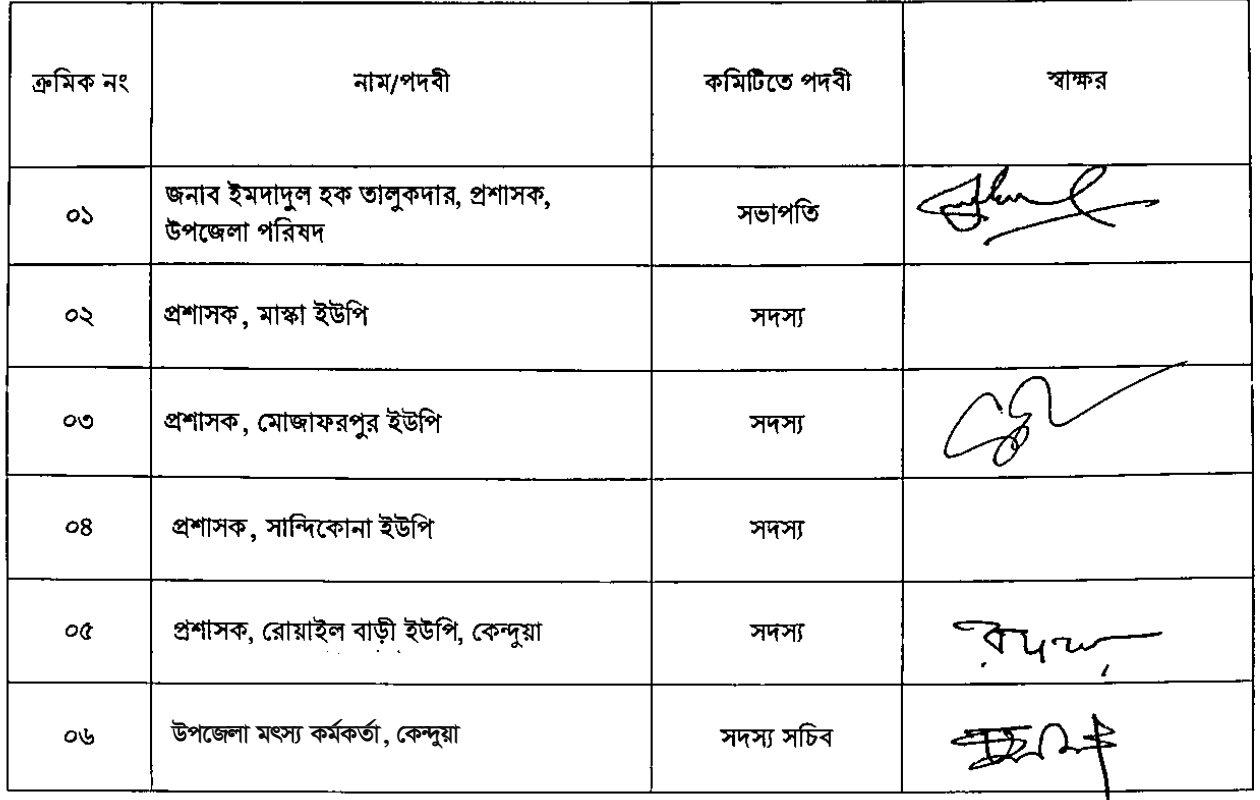 ক্রমিক নং নাম/পদবী কমিটিতে পদবী স্বাক্ষর
০১ জনাব ইমদাদুল হক তালুকদার, প্রশাসক, সভাপতি
উপজেলা পরিষদ
০২ প্রশাসক, মাস্কা ইউপি সদস্য
০৩ প্রশাসক, মোজাফরপুর ইউপি সদস্য
০৪ প্রশাসক, সান্দিকোনা ইউপি সদস্য
০৫ প্রশাসক, রোয়াইল বাড়ী ইউপি, কেন্দুয়া সদস্য
০৬ উপজেলা মৎস্য কর্মকর্তা, কেন্দুয়া সদস্য সচিব